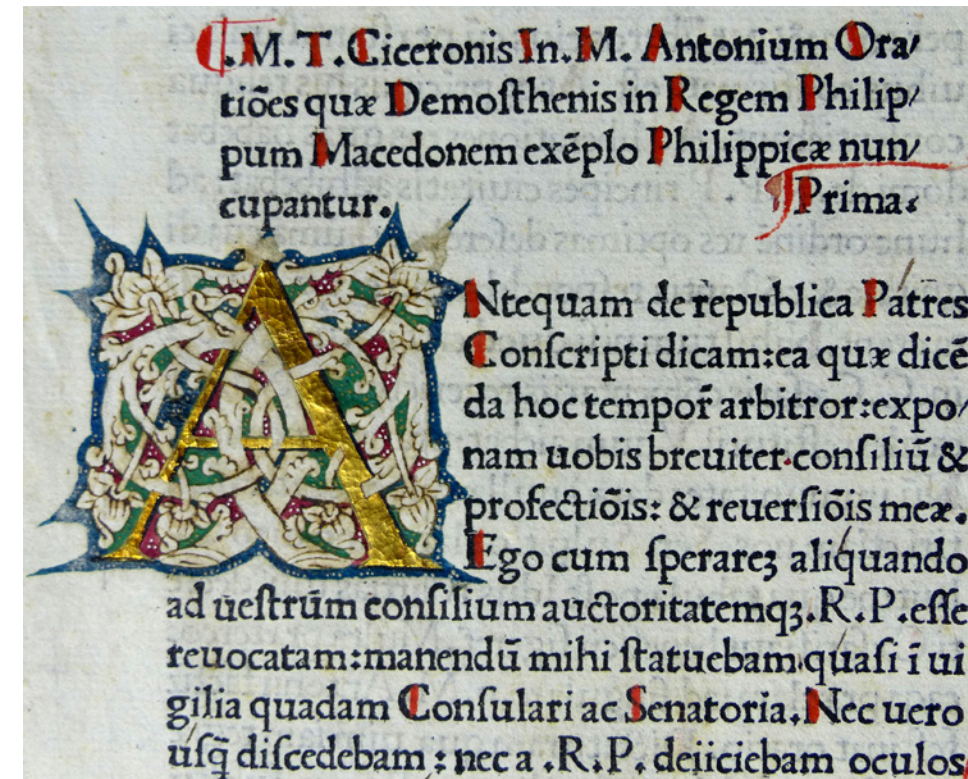 ¶.M.T.Ciceronis In.M. Antonium Ora/
tiões quæ Demoſthenis in Regem Philip/
pum Macedonem exẽplo Philippicæ nun/
cupantur. ¶Prima.
ANtequam de republica Patres
Conſcripti dicam:ea quæ dicẽ
da hoc tempor̃ arbitror:expo/
nam uobis breuiter.conſiliũ &
profectiõis: & reuerſiõis meæ.
Ego cum ſperareꝫ aliquando
ad ueſtrum conſilium auctoritatemqꝫ.R.P.eſſe
reuocatam:manendũ mihi ſtatuebam.quaſi ĩ ui
gilia quadam Conſulari ac Senatoria.Nec uero
uſq̃ diſcedebam : nec a .R.P. deiiciebam oculos